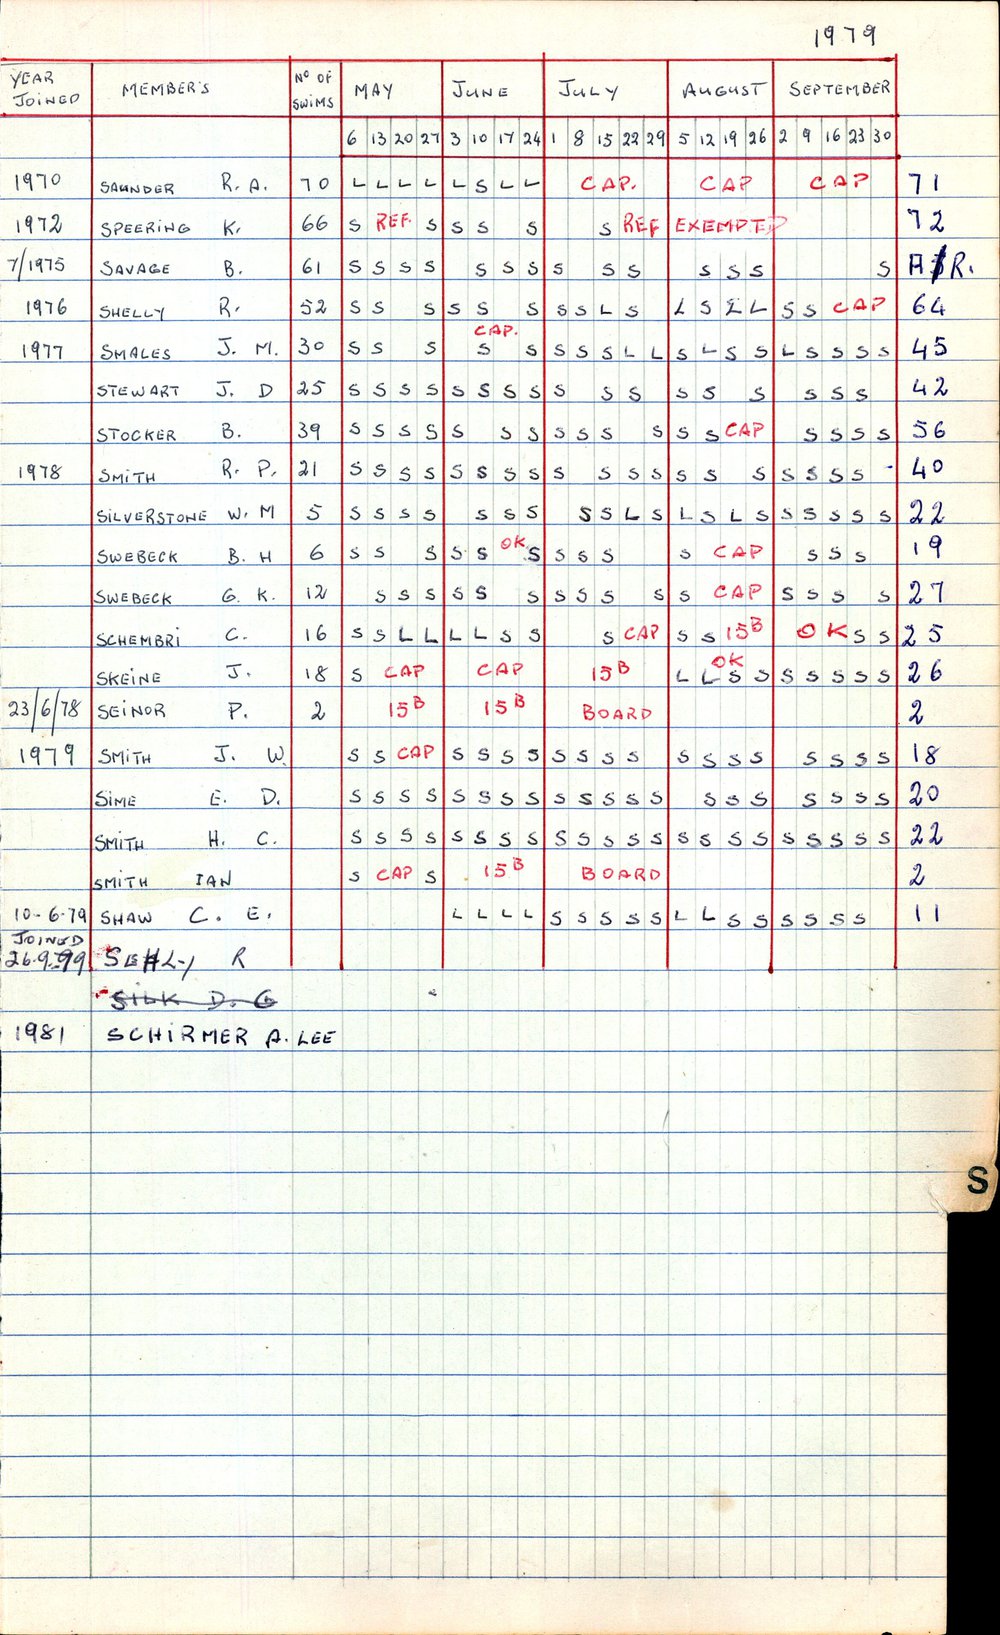 1979
YEAR JOINED MEMBER'S No OF SWIMS MAY JUNE JULY AUGUST SEPTEMBER
6 13 20 27 3 10 17 24 1 8 15 22 29 5 12 19 26 2 9 16 23 30
1970 SAUNDER R. A. 70 L L L L L S L L CAP. CAP CAP 71
1972 SPEERING K. 66 S REF. S S S S S REF EXEMPTED 72
7/1975 SAVAGE B. 61 S S S S S S S S S S S S S S R.
1976 SHELLY R. 52 S S S S S S S S L S L S L L S S CAP 64
1977 SMALES J. M. 30 S S S CAP. S S S S S L L S L S S L S S S S 45
STEWART J. D 25 S S S S S S S S S S S S S S S S S 42
STOCKER B. 39 S S S S S S S S S S S S S CAP S S S S 56
1978 SMITH R. P. 21 S S S S S S S S S S S S S S S S S S S 40
SILVERSTONE W. M 5 S S S S S S S S S L S L S L S S S S S S 22
SWEBECK B. H 6 S S S S S OK S S S S S CAP S S S 19
SWEBECK G. K. 12 S S S S S S S S S S S CAP S S S S 27
SCHEMBRI C. 16 S S L L L L S S S CAP S S 15B OK S S 25
SKEINE J. 18 S CAP CAP 15B L L OK S S S S S S S 26
23/6/78 SEINOR P. 2 15B 15B BOARD 2
1979 SMITH J. W. S S CAP S S S S S S S S S S S S S S S S 18
SIME E. D. S S S S S S S S S S S S S S S S S S S S 20
SMITH H. C. S S S S S S S S S S S S S S S S S S S S S S 22
SMITH IAN S CAP S 15B BOARD 2
10-6-79 SHAW C. E. L L L L S S S S S L L S S S S S S 11
JOINED
26.9.99 R
SILK D. G
1981 SCHIRMER A. LEE
S